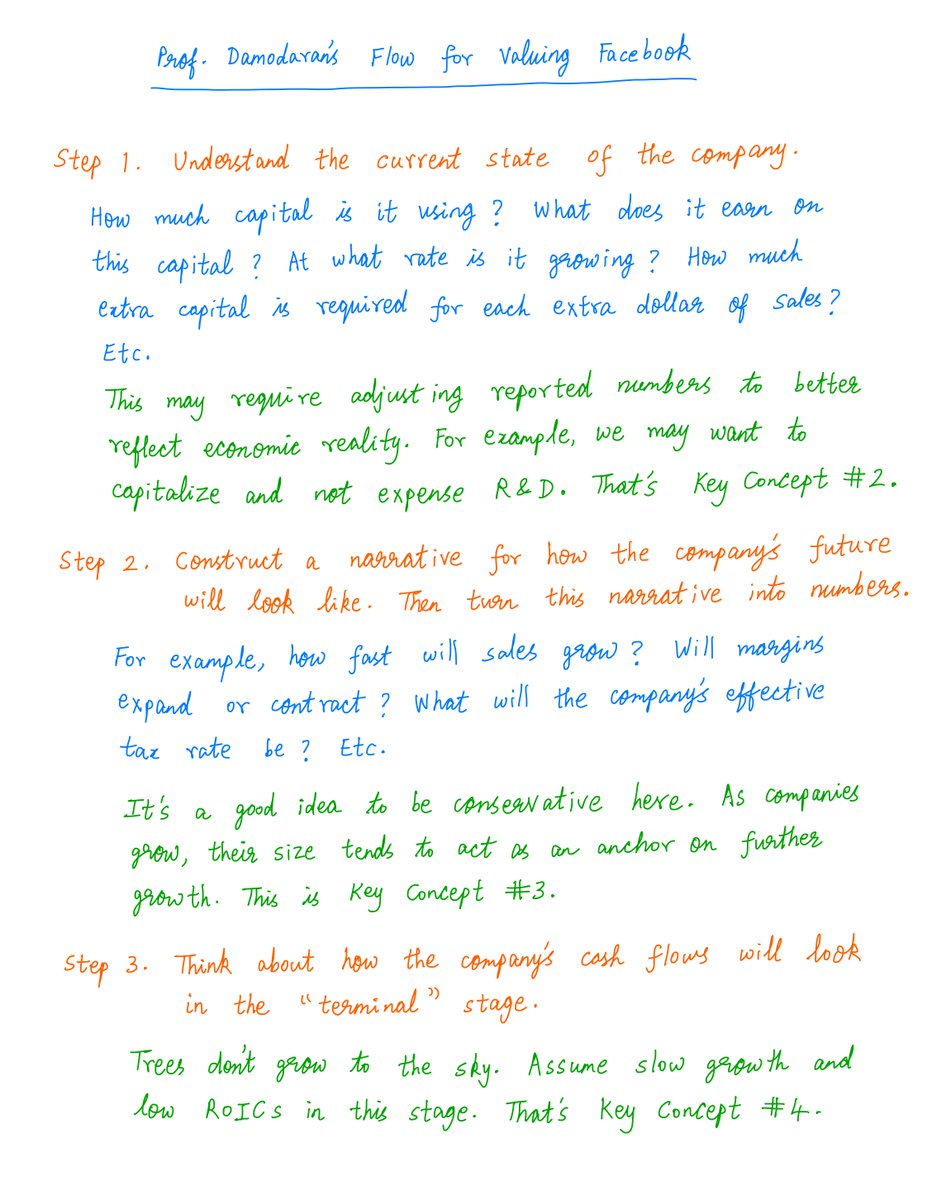 Prof. Damodaran's Flow for Valuing Facebook
Step 1. Understand the current state of the company.
How much capital is it using? What does it earn on
this capital? At what rate is it growing? How much
extra capital is required for each extra dollar of sales?
Etc.
This may require adjusting reported numbers to better
reflect economic reality. For example, we may want to
capitalize and not expense R&D. That's Key Concept #2.
Step 2. Construct a narrative for how the company's future
will look like. Then turn this narrative into numbers.
For example, how fast will sales grow? Will margins
expand or contract? What will the company's effective
tax rate be? Etc.
It's a good idea to be conservative here. As companies
grow, their size tends to act as an anchor on further
growth. This is Key Concept #3.
Step 3. Think about how the company's cash flows will look
in the "terminal" stage.
Trees don't grow to the sky. Assume slow growth and
low ROICs in this stage. That's Key Concept #4.